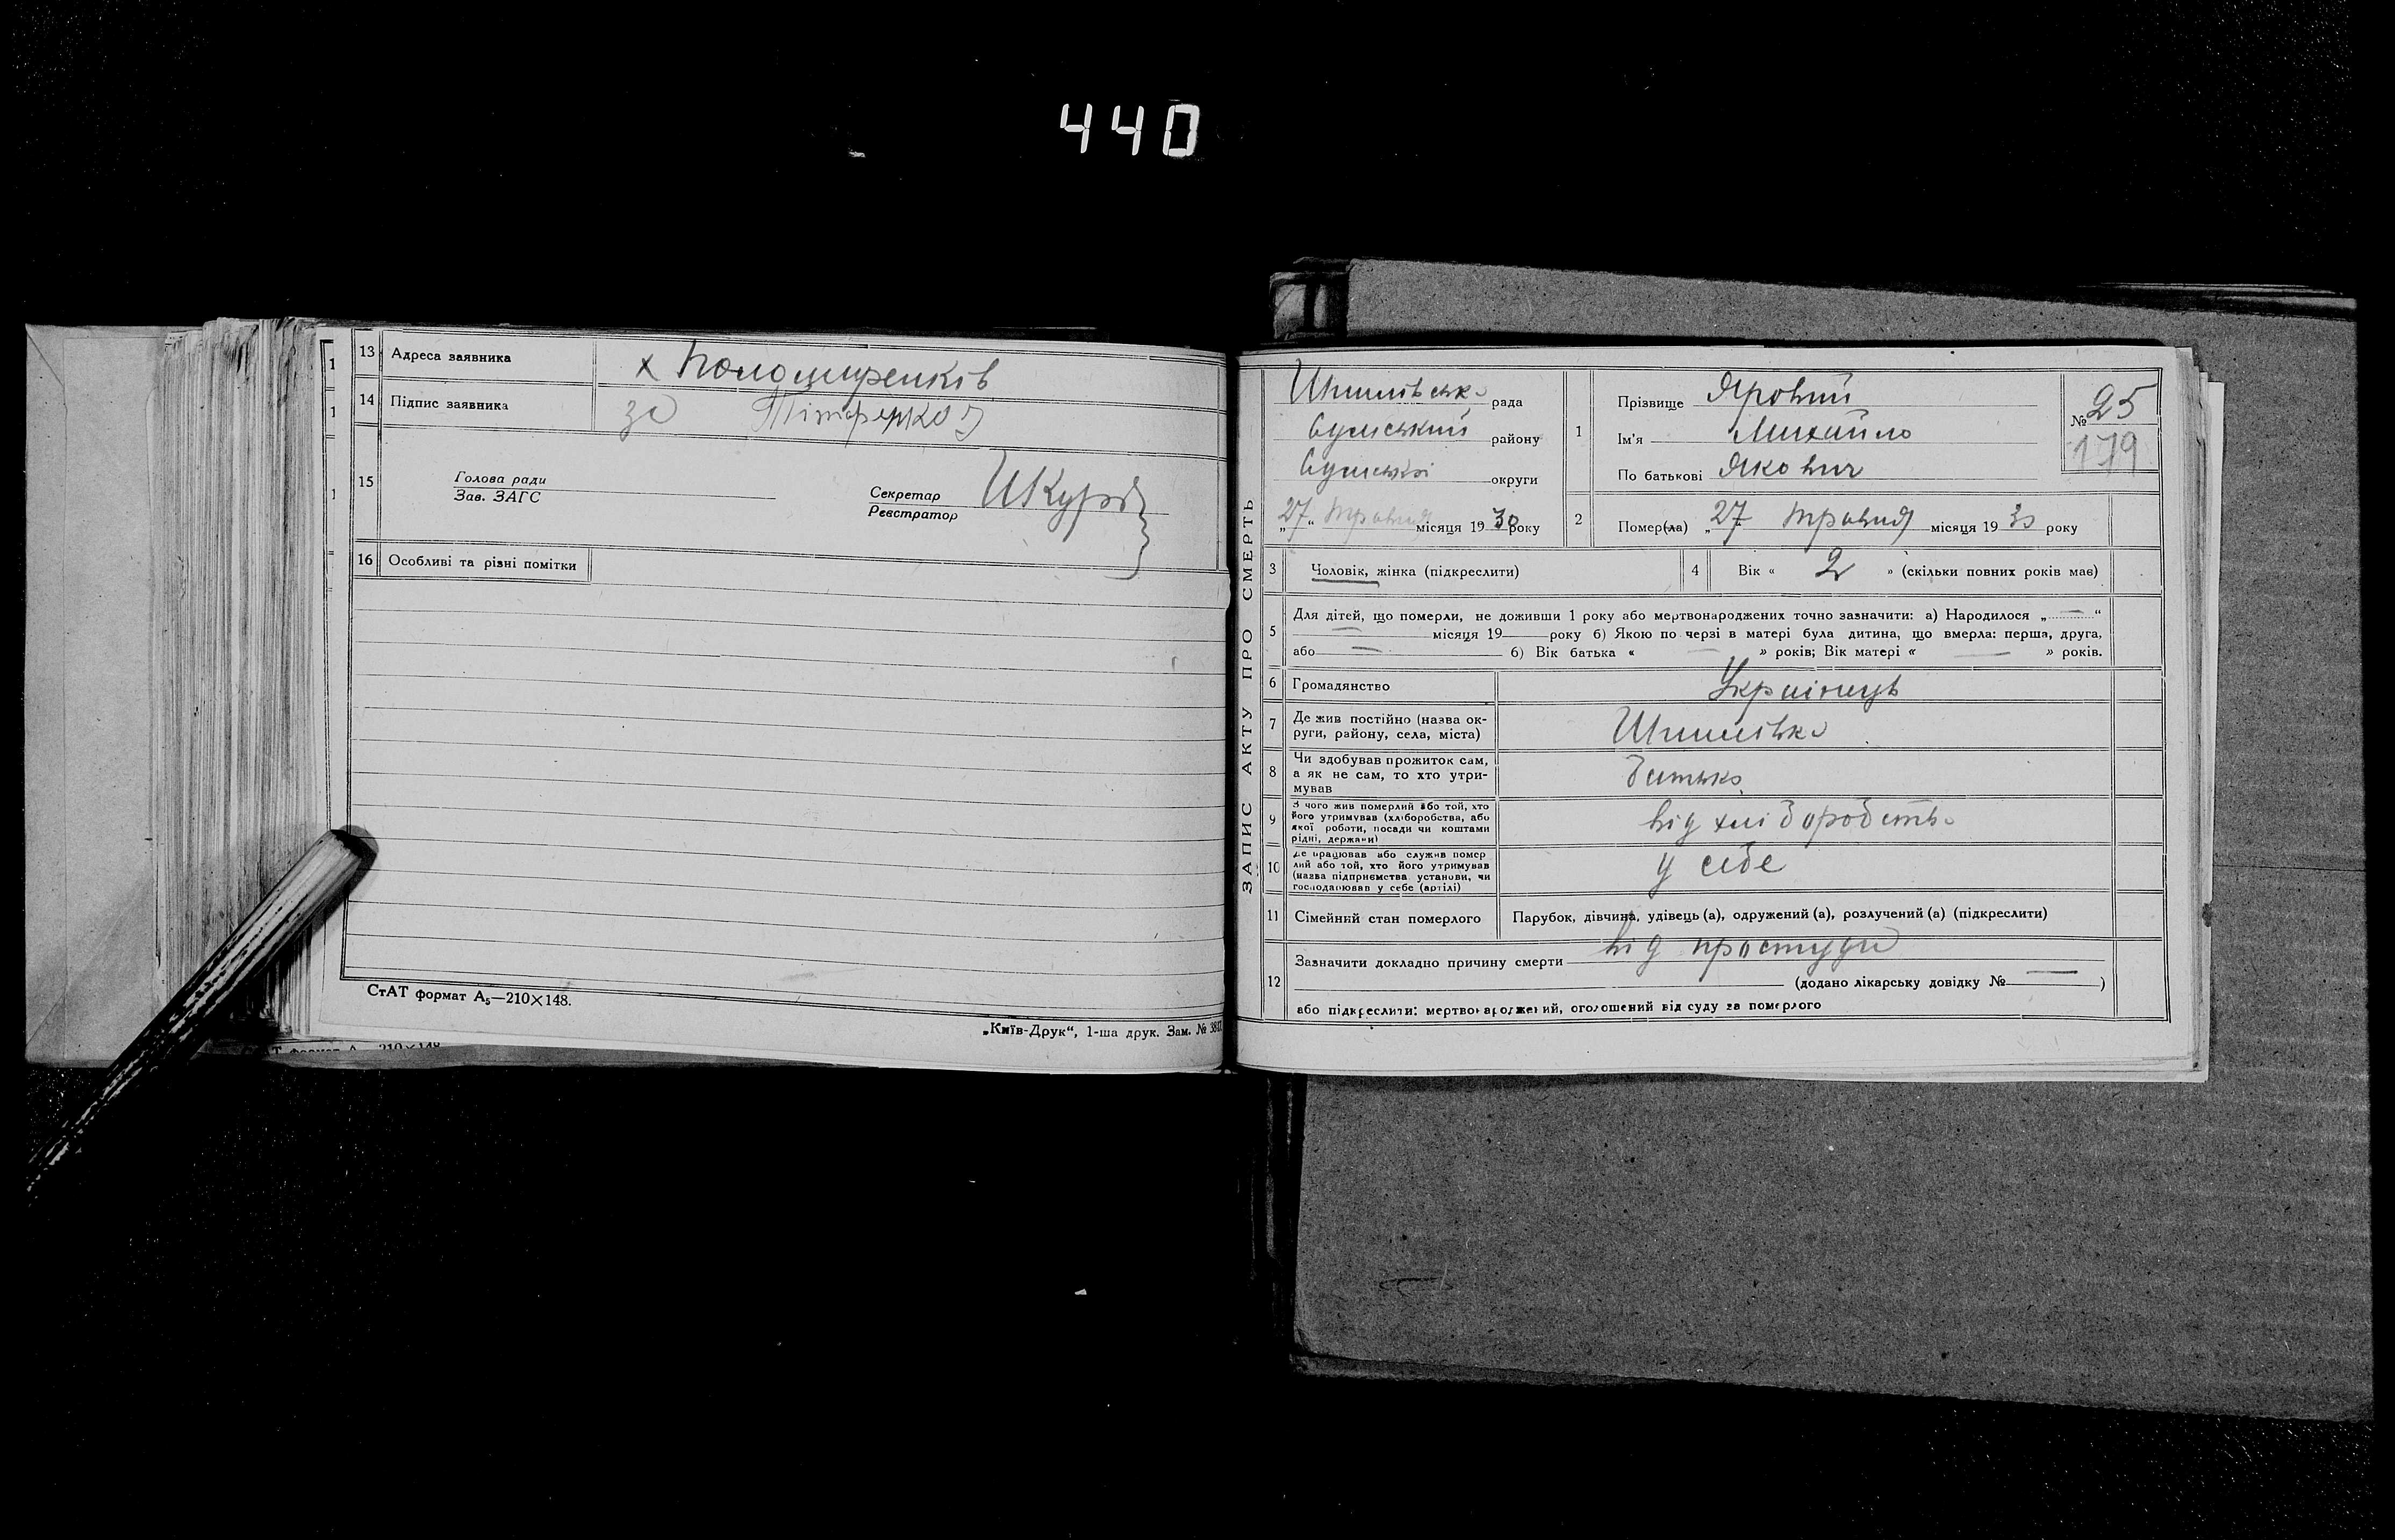 440
13 Адреса заявника х
14 Підпис заявника за
15 Голова ради
Зав. ЗАГС
Секретар
Реєстратор
16 Особливі та різні помітки
СтАТ формат А₅—210×148.
„Київ-Друк“, 1-ша друк. Зам. №
ЗАПИС АКТУ ПРО СМЕРТЬ
Шпилівська рада
Сумський району
Сумської округи
„27“ травня місяця 1930 року
1 Прізвище Яровий
Ім'я Михайло
По батькові Якович
№ 25
179
2 Помер(ла) „27 травня місяця 1930 року
3 Чоловік, жінка (підкреслити)
4 Вік « 2 » (скільки повних років має)
5 Для дітей, що померли, не доживши 1 року або мертвонароджених точно зазначити: а) Народилося „—“
— місяця 19— року б) Якою по черзі в матері була дитина, що вмерла: перша, друга,
або — б) Вік батька « — » років; Вік матері « — » років.
6 Громадянство Українець
7 Де жив постійно (назва ок-
руги, району, села, міста) Шпилівка
8 Чи здобував прожиток сам,
а як не сам, то хто утри-
мував батько
9 З чого жив померлий або той, хто
його утримував (хліборобства, або
якої роботи, посади чи коштами
рідні, держави) від хліборобства
10 Де працював або служив помер
лий або той, хто його утримував
(назва підприємства установи, чи
господарював у себе (артілі) у себе
11 Сімейний стан померлого Парубок, дівчина, удівець (а), одружений (а), розлучений (а) (підкреслити)
12 Зазначити докладно причину смерти від простуди
(додано лікарську довідку № — )
або підкреслити: мертвонароджений, оголошений від суду за померлого